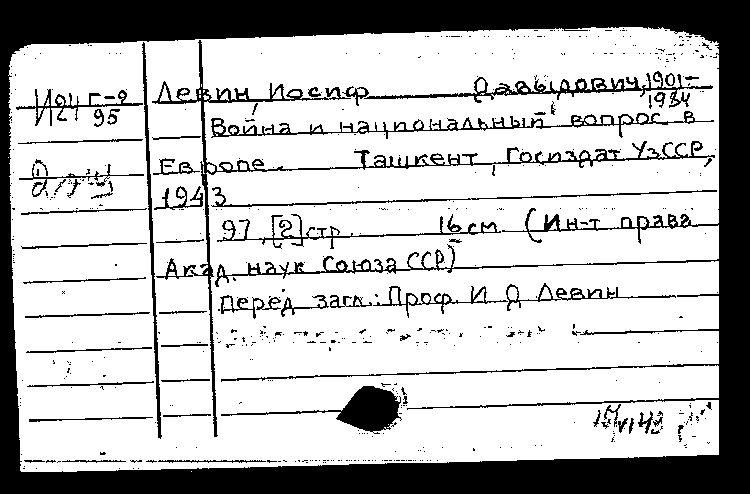 И24 Г-9/95
Левин, Иосиф Давыдович, 1901-1984
Война и национальный вопрос в
Европе. Ташкент, Госиздат УзССР,
1943
97, [2] стр. 16 см. (Ин-т права
Акад. наук Союза ССР)
Перед загл.: Проф. И Д Левин
15/VI 43